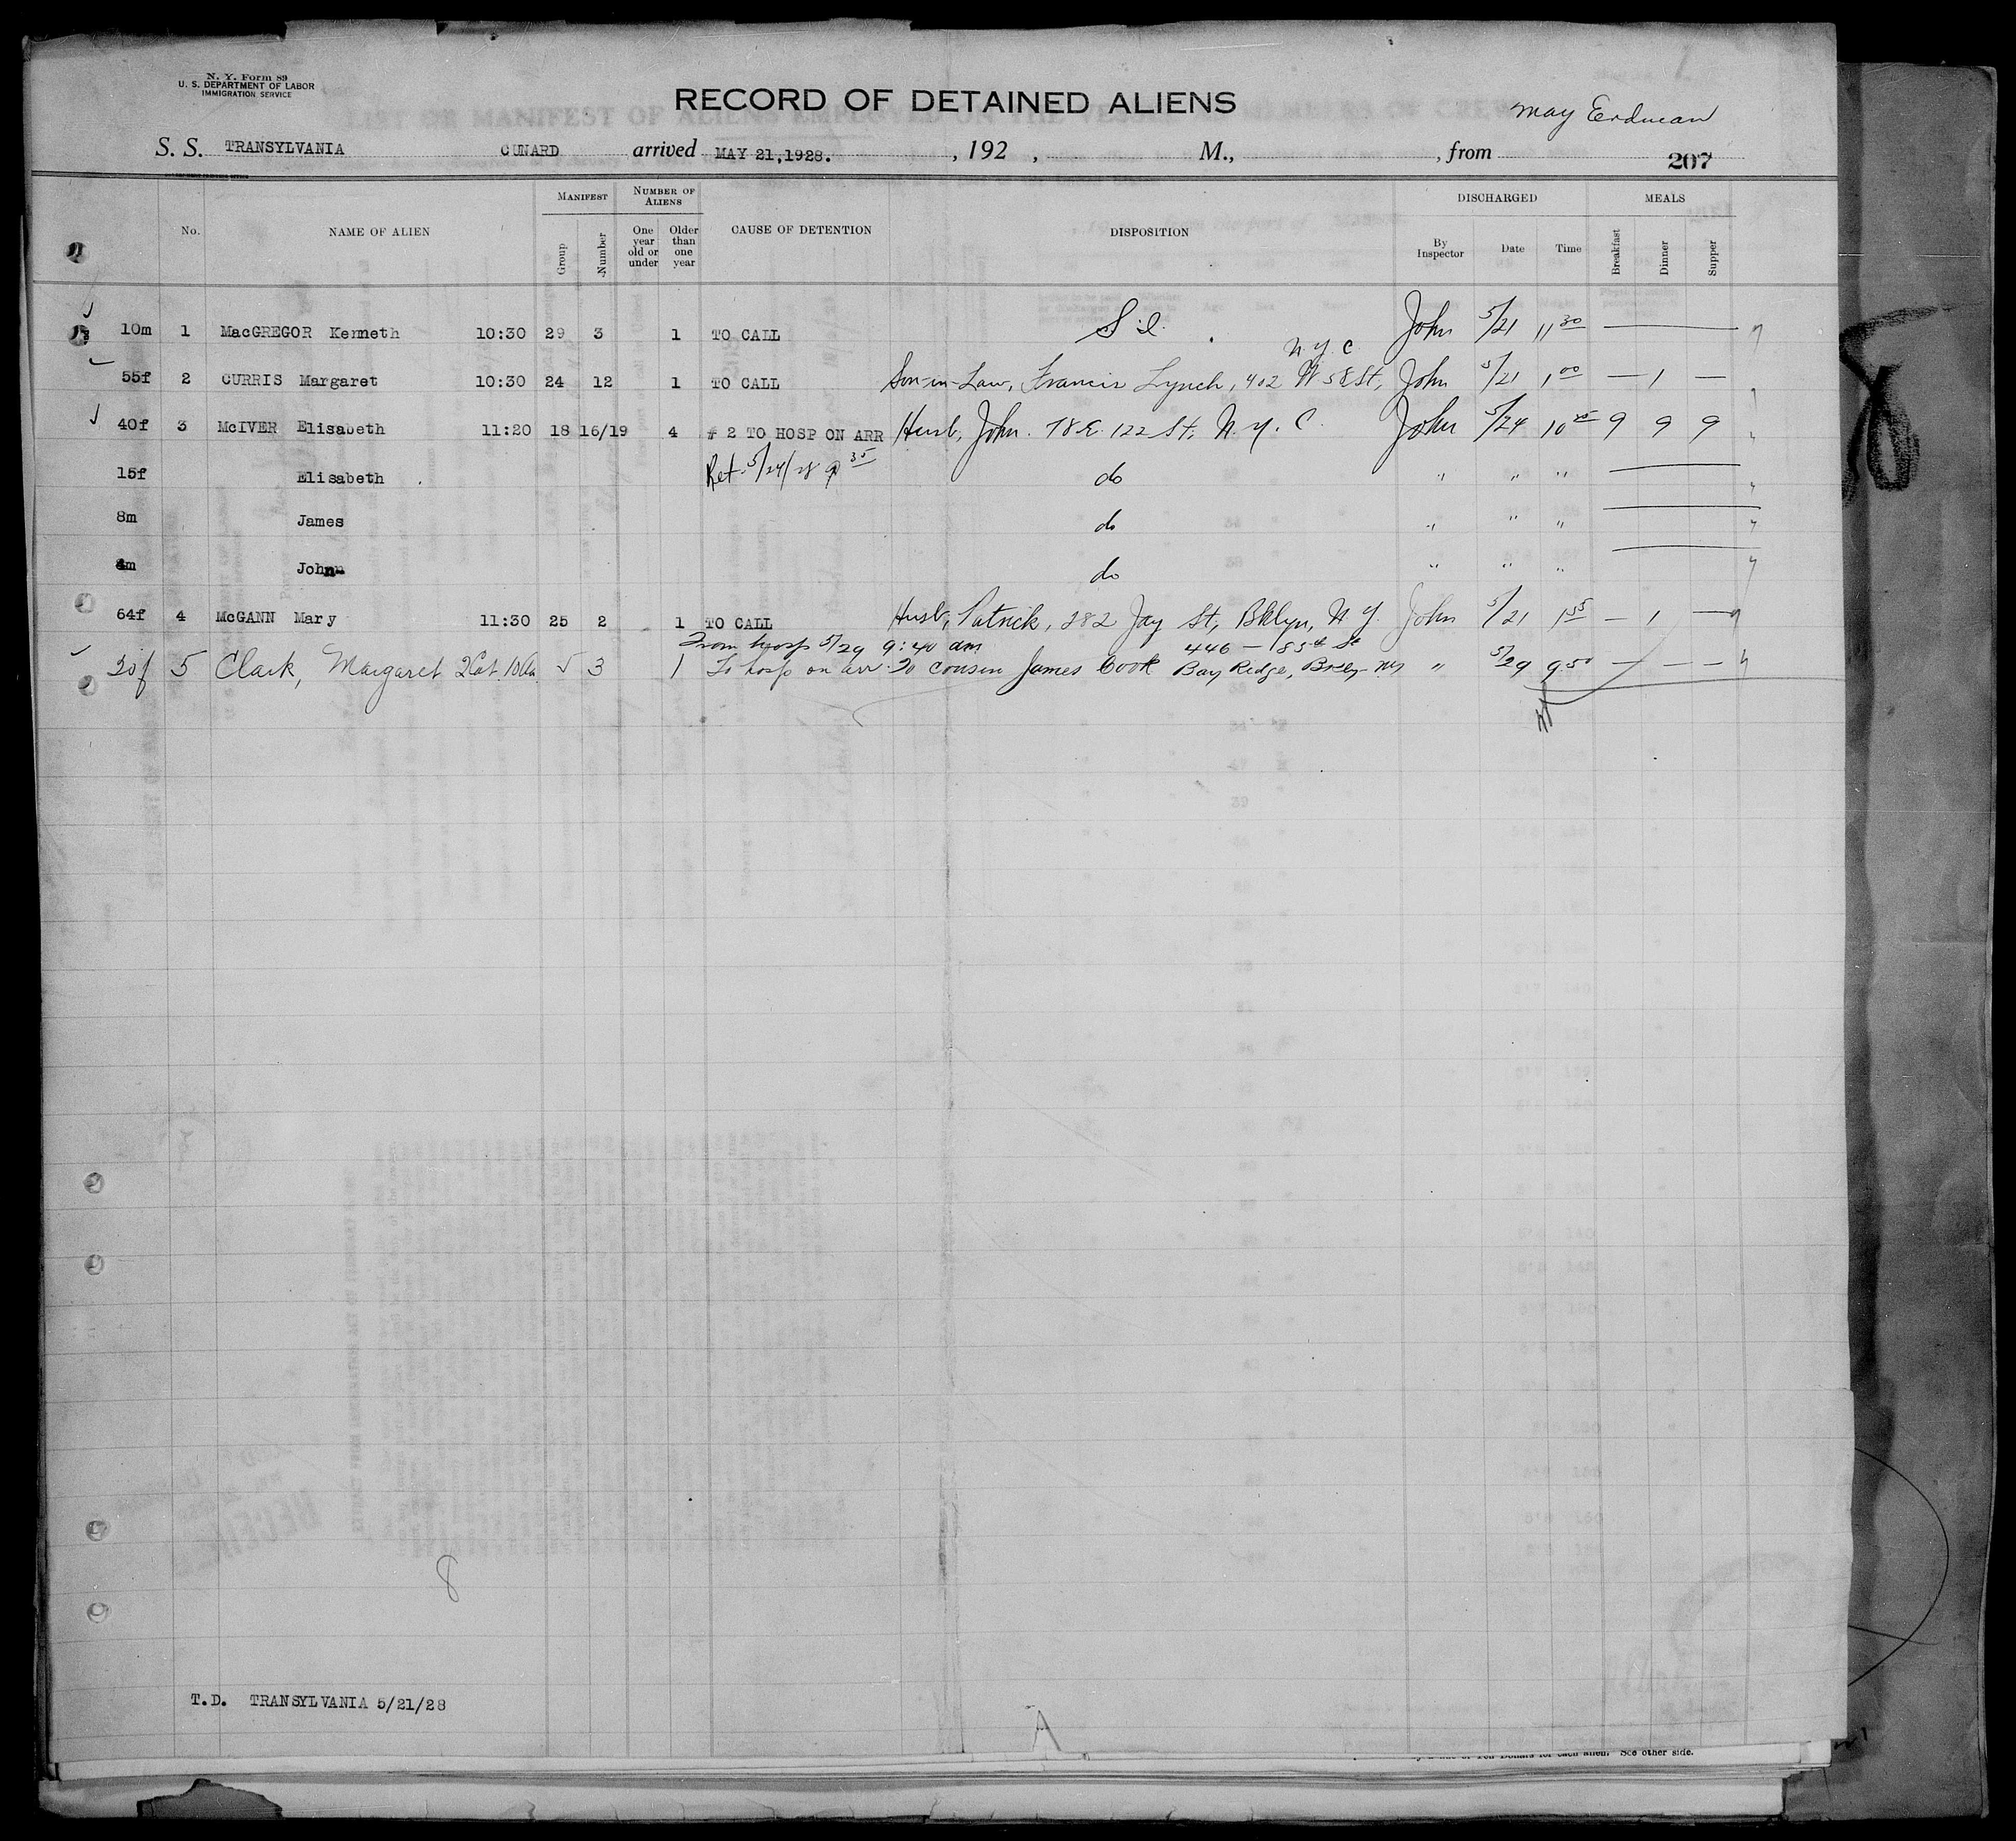 N. Y. Form 89
U. S. DEPARTMENT OF LABOR
IMMIGRATION SERVICE
RECORD OF DETAINED ALIENS
May Erdman
S. S. TRANSYLVANIA CUNARD arrived MAY 21,1928. , 192 , M., , from 207
No. NAME OF ALIEN MANIFEST Group Number NUMBER OF ALIENS One year old or under Older than one year CAUSE OF DETENTION DISPOSITION DISCHARGED By Inspector Date Time MEALS Breakfast Dinner Supper
10m 1 MacGREGOR Kenneth 10:30 29 3 1 TO CALL S.I. John 5/21 11 30 —
N.Y.C
55f 2 CURRIS Margaret 10:30 24 12 1 TO CALL Son-in-Law, Francis Lynch, 402 W 58 St, John 5/21 1 00 — 1 —
40f 3 McIVER Elisabeth 11:20 18 16/19 4 # 2 TO HOSP ON ARR Husb, John. 78 E. 122 St, N.Y.C. John 5/24 10 9 9 9
15f Elisabeth Ret. 5/24/28 9 35 do " " " —
8m James do " " " —
4m John do " " " —
64f 4 McGANN Mary 11:30 25 2 1 TO CALL Husb, Patrick, 282 Jay St, Bklyn, N.Y. John 5/21 1 55 — 1 —
From hosp 5/29 9:40 am 446 - 83rd St
20f 5 Clark, Margaret 3 1 To hosp on arr To cousin James Cook Bay Ridge, Bkly- NY " 5/29 9.50 — — —
8
T.D. TRANSYLVANIA 5/21/28
A
Ten Dollars for each alien. See other side.